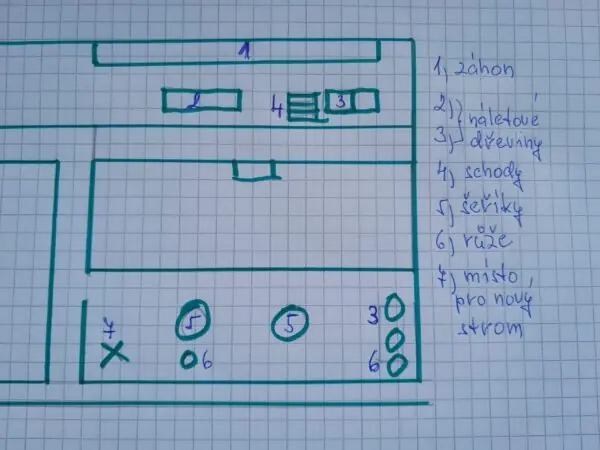 1
2
4
3
1, záhon
2,} náletové
3,} dřeviny
4, schody
5, šeříky
6, růže
7, místo
pro nový
strom
7
5
5
3
6
6